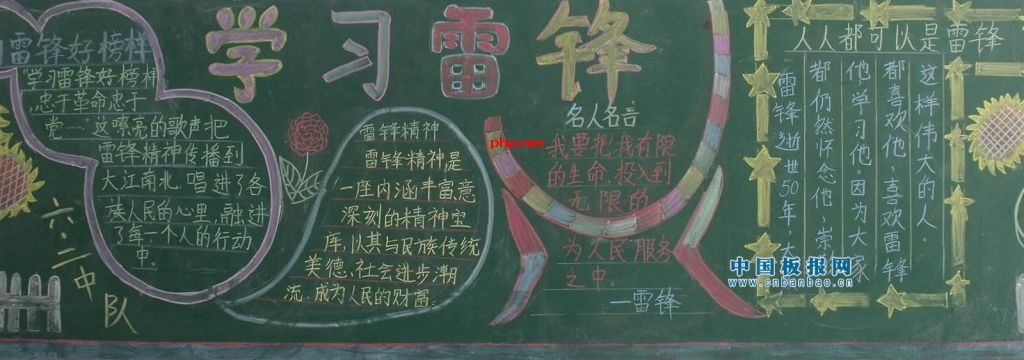 学习雷锋
雷锋好榜样
"学习雷锋好榜样
忠于革命忠于
党……"这嘹亮的歌声把
雷锋精神传播到
大江南北,唱进了各
族人民的心里,融进
了每一个人的行动
中。
六.二中队
雷锋精神
雷锋精神,是
一座内涵丰富,意
深刻的精神宝
库,以其与民族传统
美德、社会进步潮
流,成为人民的财富。
phpcom
名人名言
我要把我有限
的生命,投入到
无限的
为人民服务
之中。
—雷锋
人人都可以是雷锋
这样伟大的人,
都喜欢他,喜欢雷锋
他学习他。因为大家
都仍然怀念他、崇
雷锋逝世50年,大
中国板报网
www.cnbanbao.cn